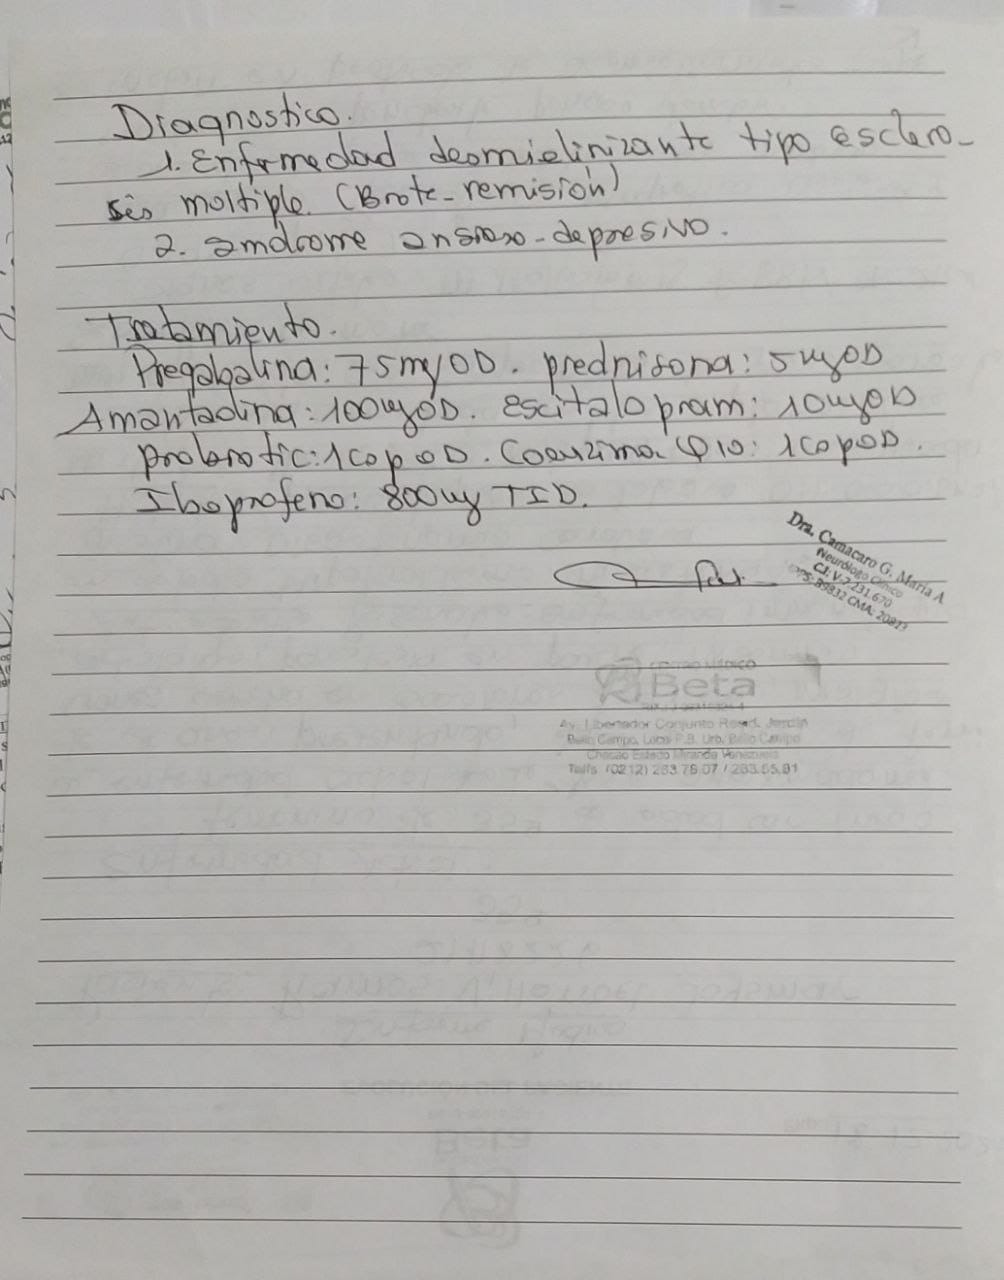 Diagnostico.
1. Enfermedad desmielinizante tipo esclero-
sis moltiple. (Brote-remisión)
2. Sindrome ansioso-depresivo.
Tratamiento.
Pregabalina: 75mg OD. prednisona: 5mg OD
Amantadina: 100mg OD. escitalopram: 10mg OD
probiotic: 1 cap OD. Coenzima Q10: 1 cap OD.
Iboprofeno: 800mg TID.
Dra. Camacaro G. Maria A
Neurólogo Clínico
C.I: V-7.231.670
89832 CMA: 20877
Beta
Av. Libertador Conjunto Resid. Jardín
Bello Campo, Local P.B. Urb. Bello Campo
Chacao Estado Miranda Venezuela
Telfs (0212) 263.78.07 / 263.55.81